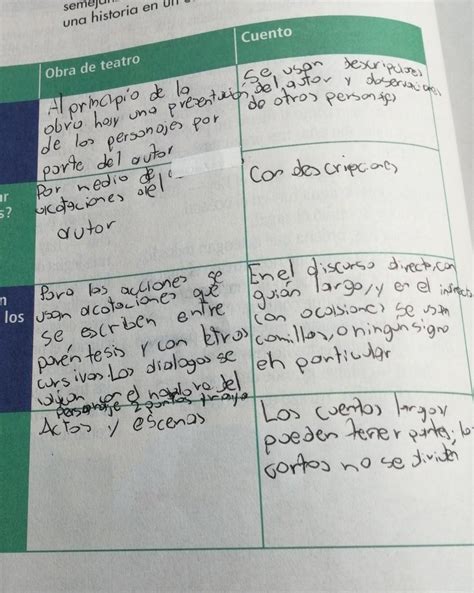 semejan
una historia en un
Obra de teatro
Cuento
Al principio de la
obra hay una presentacion
de los personajes por
parte del autor
Se usan descripciones
del autor y observaciones
de otros personajes
ar
s?
Por medio de
acotaciones del
autor
Con descripciones
n
los
Para las acciones se
usan acotaciones que
se escriben entre
paréntesis y con letras
cursivas. Los dialogos se
con el nombre del
personaje 2 puntos
En el discurso directo, con
guión largo, y en el indirecto
con ocasiones se usan
comillas, o ningun signo
en particular
Actos y escenas
Los cuentos largos
pueden tener partes; lo
cortos no se dividen